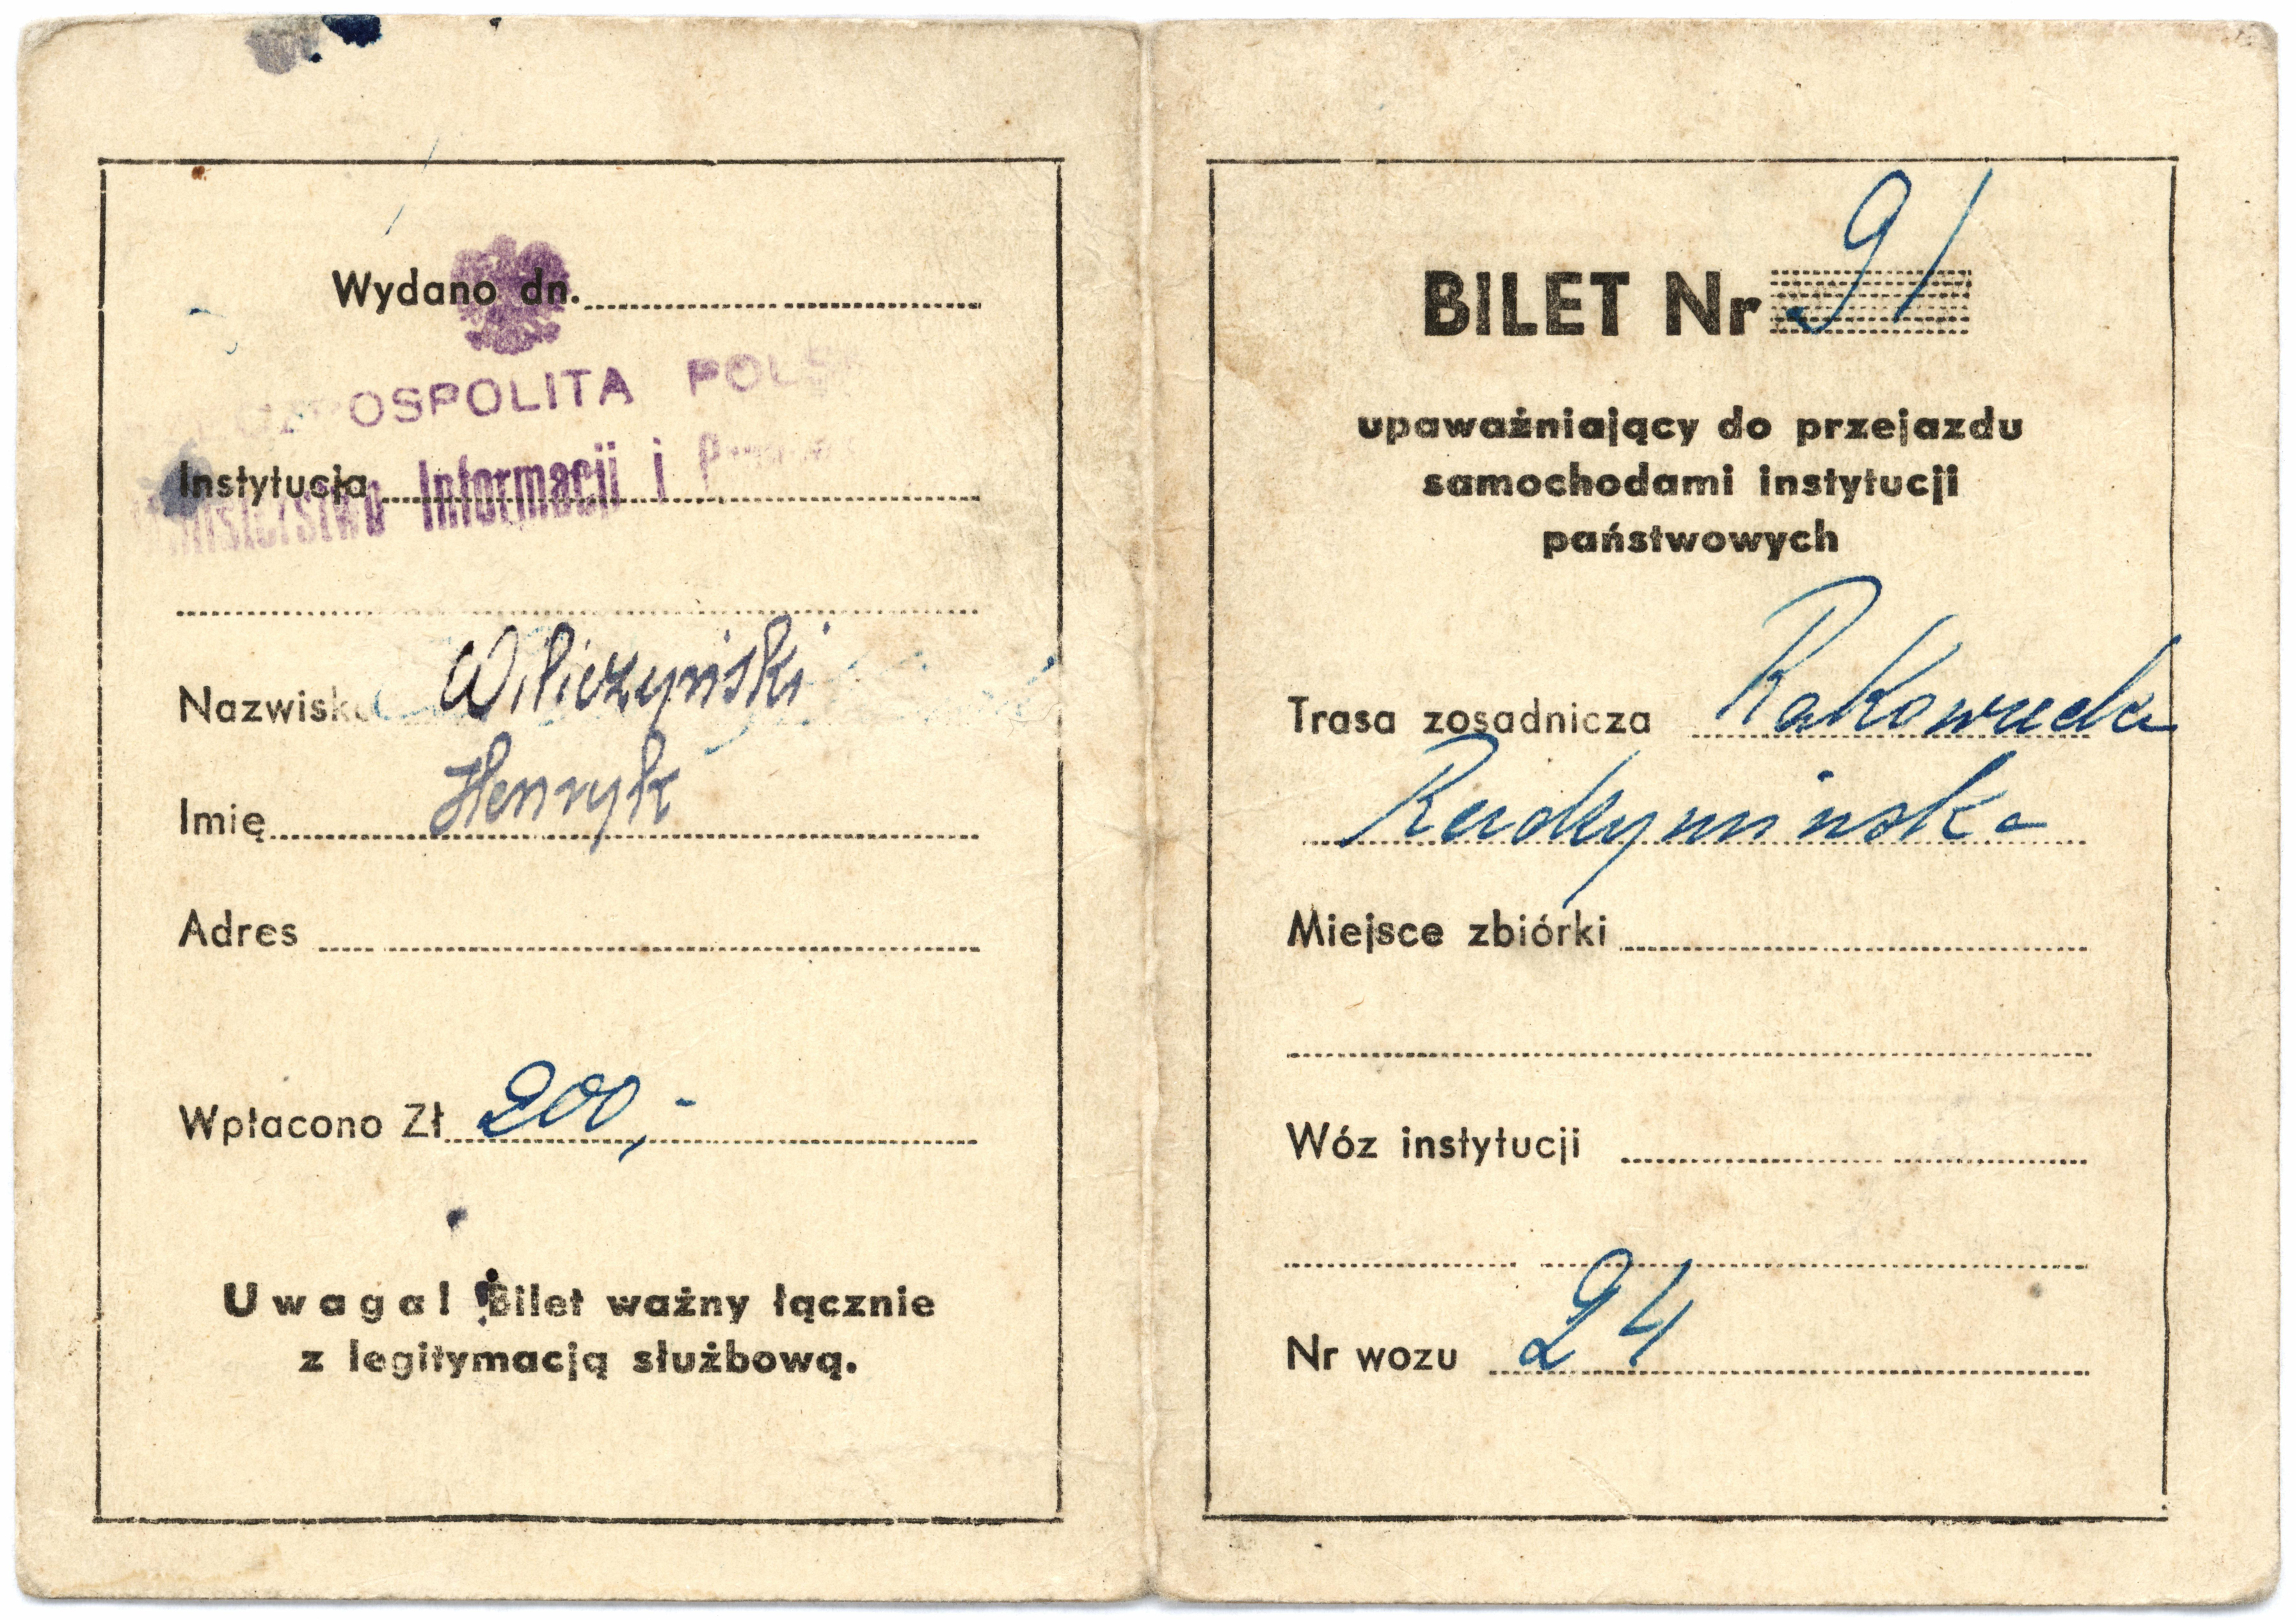 Wydano dn.
RZECZPOSPOLITA POLSKA
Instytucja
Ministerstwo Informacji i
Nazwisko Wilczyński
Imię Henryk
Adres
Wpłacono Zł 200,-
Uwaga! Bilet ważny łącznie
z legitymacją służbową.
BILET Nr 91
upaważniający do przejazdu
samochodami instytucji
państwowych
Trasa zosadnicza Rakowiecka
Radzymińska
Miejsce zbiórki
Wóz instytucji
Nr wozu 24